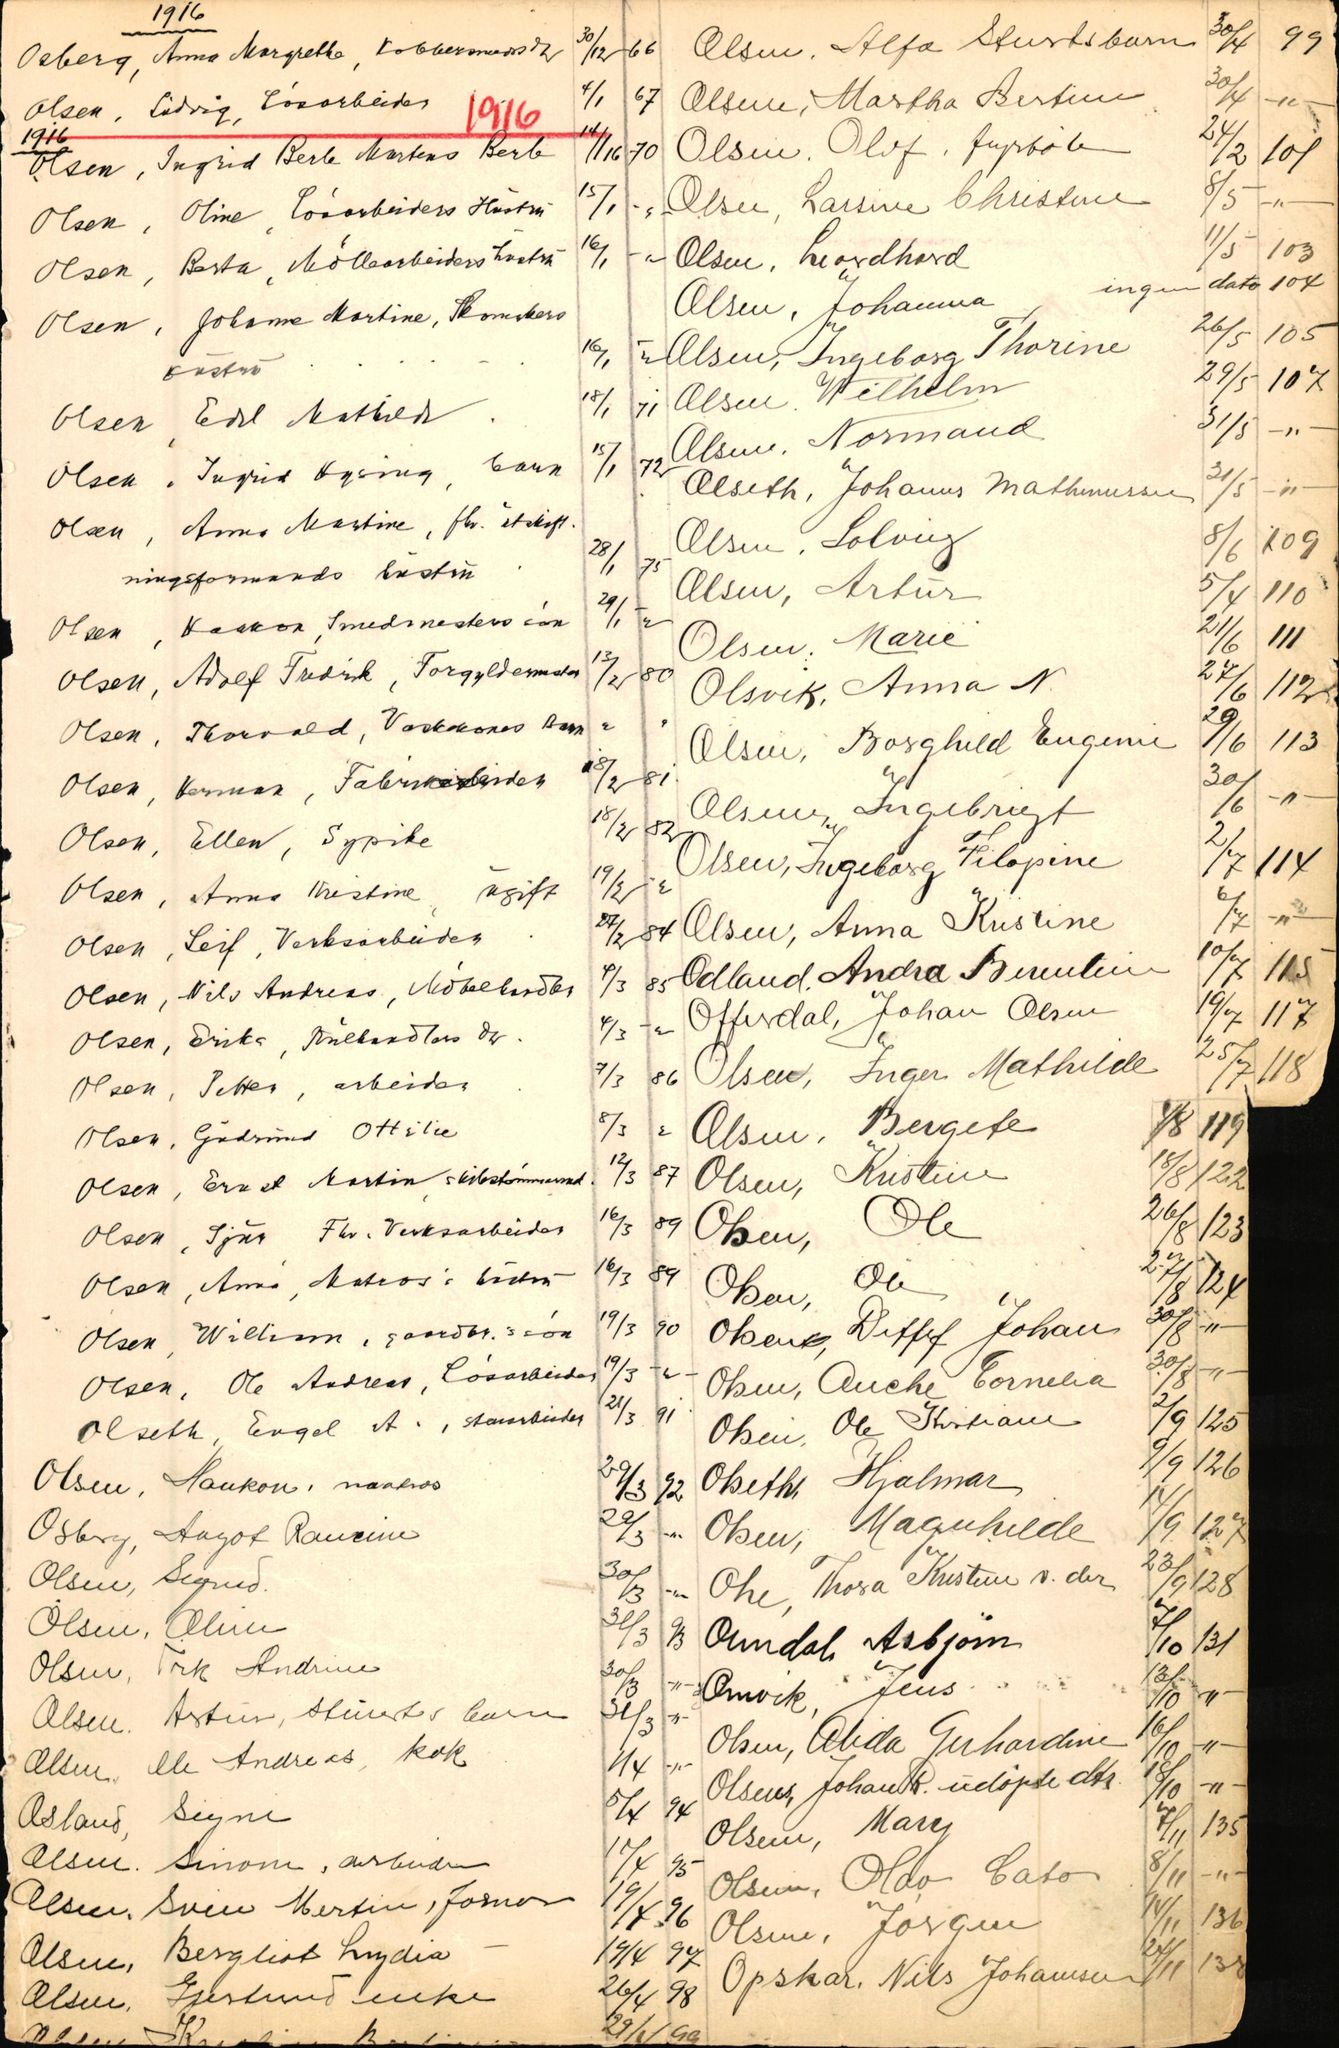 1916
Osberg, Anna Margrethe, Kobbersmeds dr 30/12 66
Olsen, Ludvig, Lösarbeider 4/1 67
1916
1916
Olsen, Ingrid Berle Martens Berle 14/1 16 70
Olsen, Oline, Lösarbeiders Hustru 15/1 -"-
Olsen, Berta, Möllearbeiders hustru 16/1 -"
Olsen, Johanne Martine, Skomakers
hustru 16/1 -"
Olsen, Edel Mathilde 18/1 71
Olsen, Ingrid Hysing, barn 15/1 72
Olsen, Anna Martine, fhv. utskift-
ningsformands hustru 28/1 75
Olsen, Haakon, Smedmesters sön 29/1 -"
Olsen, Adolf Fredrik, Forgyldermester 13/2 80
Olsen, Thorvald, Vaskekones barn " "
Olsen, Herman, Fabrikarbeider 18/2 81
Olsen, Ellen, Sypike 18/2 82
Olsen, Anna Kristine, ugift 19/2 -"
Olsen, Leif, Verksarbeider 27/2 84
Olsen, Nils Andreas, Möbelhandler 4/3 85
Olsen, Erika, Kulhandlers dr. 4/3 -"
Olsen, Petter, arbeider 7/3 86
Olsen, Gudrund Ottilie 8/3 "
Olsen, Ernst Martin, skibstömmermd. 12/3 87
Olsen, Sjur Fhv. Verksarbeider 16/3 89
Olsen, Anna, Matros's hustru 16/3 89
Olsen, William, gaardbr.s sön 19/3 90
Olsen, Ole Andreas, Lösarbeider 19/3 -"-
Olseth, Engel A., stuearbeider 21/3 91
Olsen, Haakon, matros 29/3 92
Osberg, Aagot Rancine 29/3 -"-
Olsen, Sigrud. 30/3 -"-
Olsen, Oline 31/3 93
Olsen, Andrine 30/3 -"-
Olsen, Artur, Stuerts barn 31/3 -"-
Olsen, Ole Andreas, kok 1/4 -"-
Osland, Signe 5/4 94
Olsen, Simon, arbeider 10/4 95
Olsen, Svein Mertin, 19/4 96
Olsen, Bergliot Lydia 19/4 97
Olsen, Gjertrud enke 26/4 98
Olsen 29/4 99
Olsen, Alfa Stuertsbarn 30/4 99
Olsen, Martha Bertine 30/4 -"-
Olsen, Olof, fyrböter 24/2 101
Olsen, Larsine Christine 8/5 -"-
Olsen, Leordhard 11/5 103
Olsen, Johanna ingen dato 104
Olsen, Ingeborg Thorine 26/5 105
Olsen, Wilhelm 29/5 107
Olsen, Normand 31/5 -"-
Olseth, Johannes Mathinussen 31/5 -"-
Olsen, Solveig 8/6 109
Olsen, Artur 5/4 110
Olsen, Marie 21/6 111
Olsvik, Anna N. 27/6 112
Olsen, Borghild Eugenie 29/6 113
Olsen, Ingebrigt 30/6 -"-
Olsen, Ingeborg Filopine 2/7 114
Olsen, Anna Kristine 6/7 -"-
Odland, Andrea Berentine 10/7 115
Offerdal, Johan Olsen 19/7 117
Olsen, Inger Mathilde 25/7 118
Olsen, Bergete 1/8 119
Olsen, Kristine 18/8 122
Olsen, Ole 26/8 123
Olsen, Ole 27/8 124
Olsen, Detlef Johan 30/8 -"-
Olsen, Anche Cornelia 30/8 -"-
Olsen, Ole Kristian 2/9 125
Olseth, Hjalmar 9/9 126
Olsen, Magnhilde 14/9 127
Ohe, Thora Kristine v. der 23/9 128
Omdal, Asbjörn 7/10 131
Omvik, Jens 13/10 -"-
Olsen, Alida Gerhardine 16/10 -"-
Olsens, Johan R. udöpte dtr. 18/10 -"-
Olsen, Mary 7/11 135
Olsen, Olav Cato 8/11 -"-
Olsen, Jörgen 14/11 136
Opskar, Nils Johansen 24/11 138